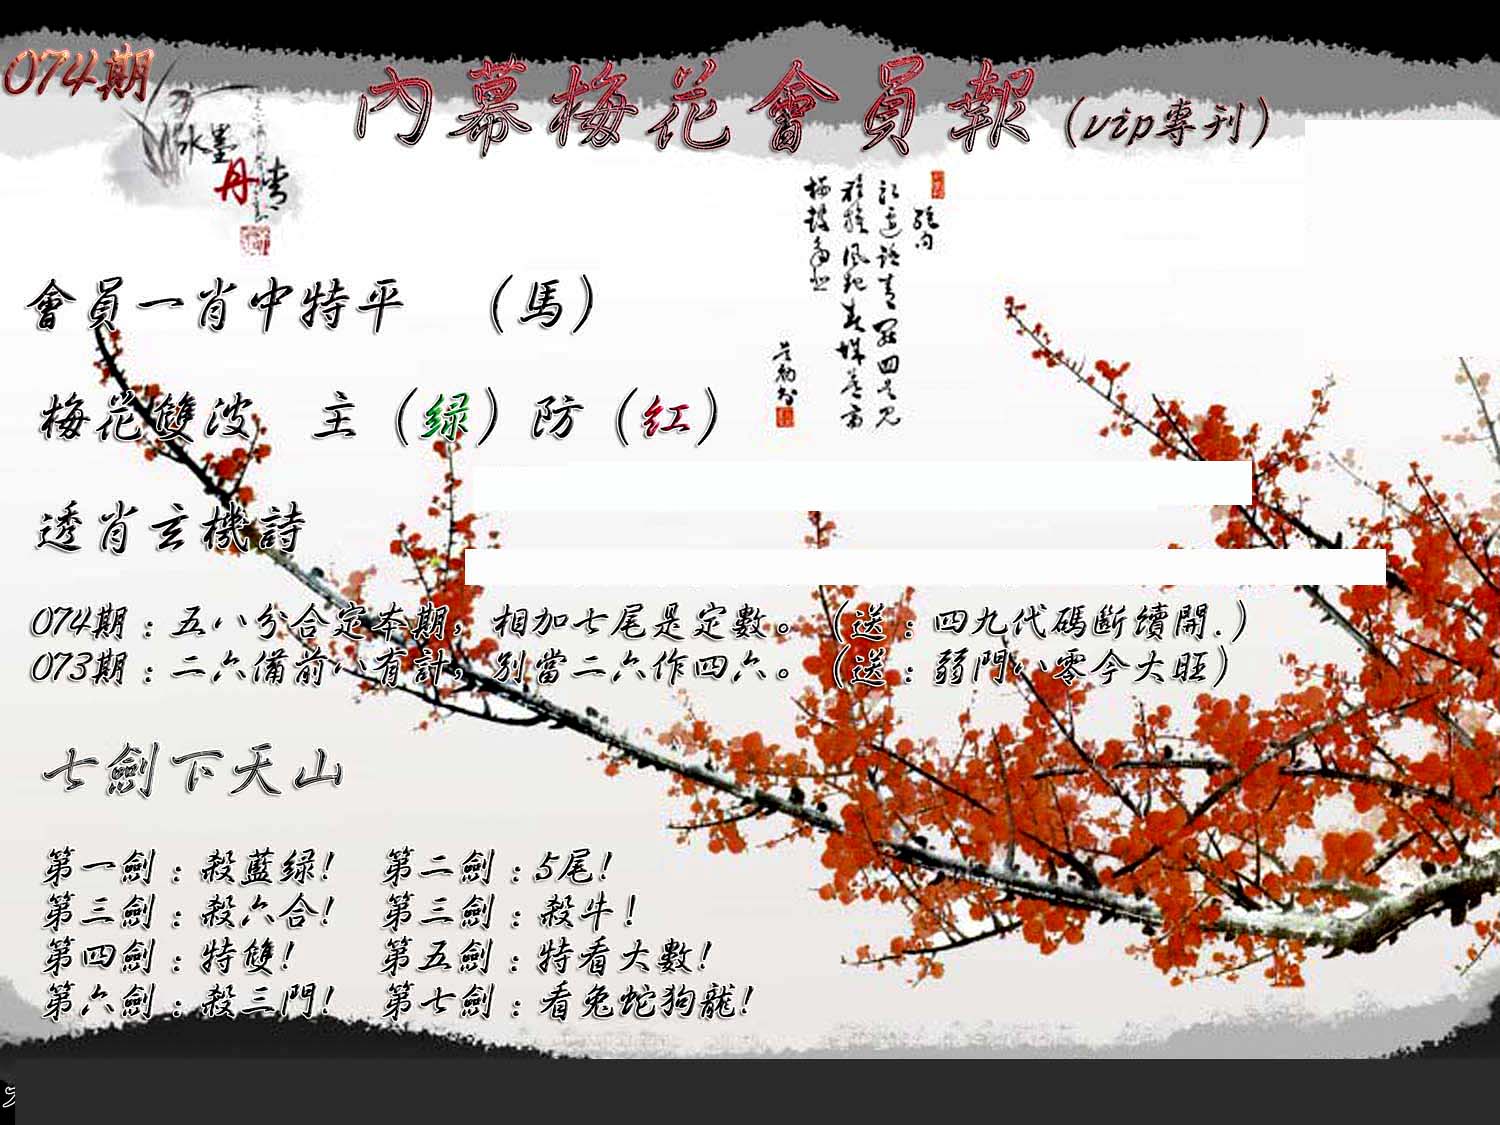 074期
內幕梅花會員報(vip專刊)
水墨
丹青
絕句
會員一肖中特平 (馬)
梅花雙波 主(绿)防(红)
透肖玄機詩
074期:五八分合定本期,相加七尾是定數。(送:四九代碼斷續開.)
073期:二六備前八有計,別當二六作四六。(送:弱門八零今大旺)
七劍下天山
第一劍:殺藍绿! 第二劍:5尾!
第三劍:殺六合! 第三劍:殺牛!
第四劍:特雙! 第五劍:特看大數!
第六劍:殺三門! 第七劍:看兔蛇狗龍!